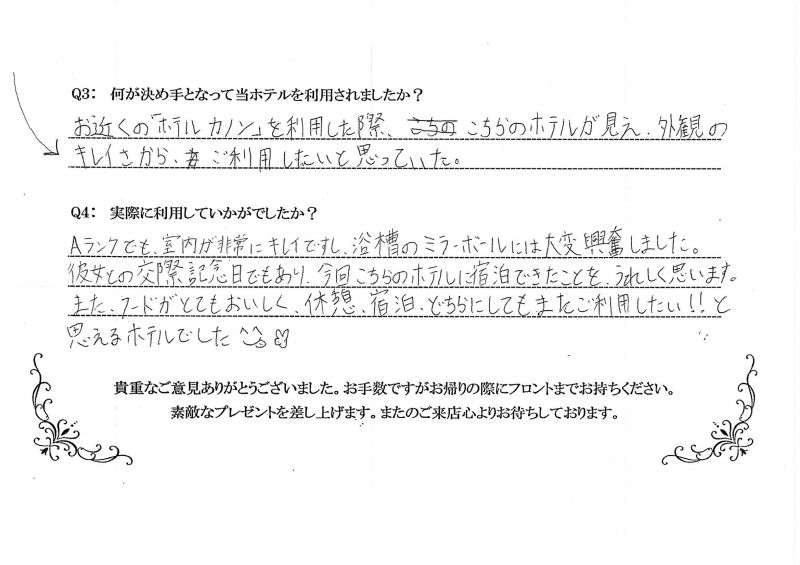 Q3： 何が決め手となって当ホテルを利用されましたか？
お近くの「ホテル カノン」を利用した際、こちらのホテルが見え、外観の
キレイさから、ご利用したいと思っていた。
Q4： 実際に利用していかがでしたか？
Aランクでも、室内が非常にキレイですし、浴槽のミラーボールには大変興奮しました。
彼女との交際記念日でもあり、今回こちらのホテルに宿泊できたことを、うれしく思います。
また、フードがとてもおいしく、休憩、宿泊、どちらにしてもまたご利用したい!!と
思えるホテルでした
貴重なご意見ありがとうございました。お手数ですがお帰りの際にフロントまでお持ちください。
素敵なプレゼントを差し上げます。またのご来店心よりお待ちしております。